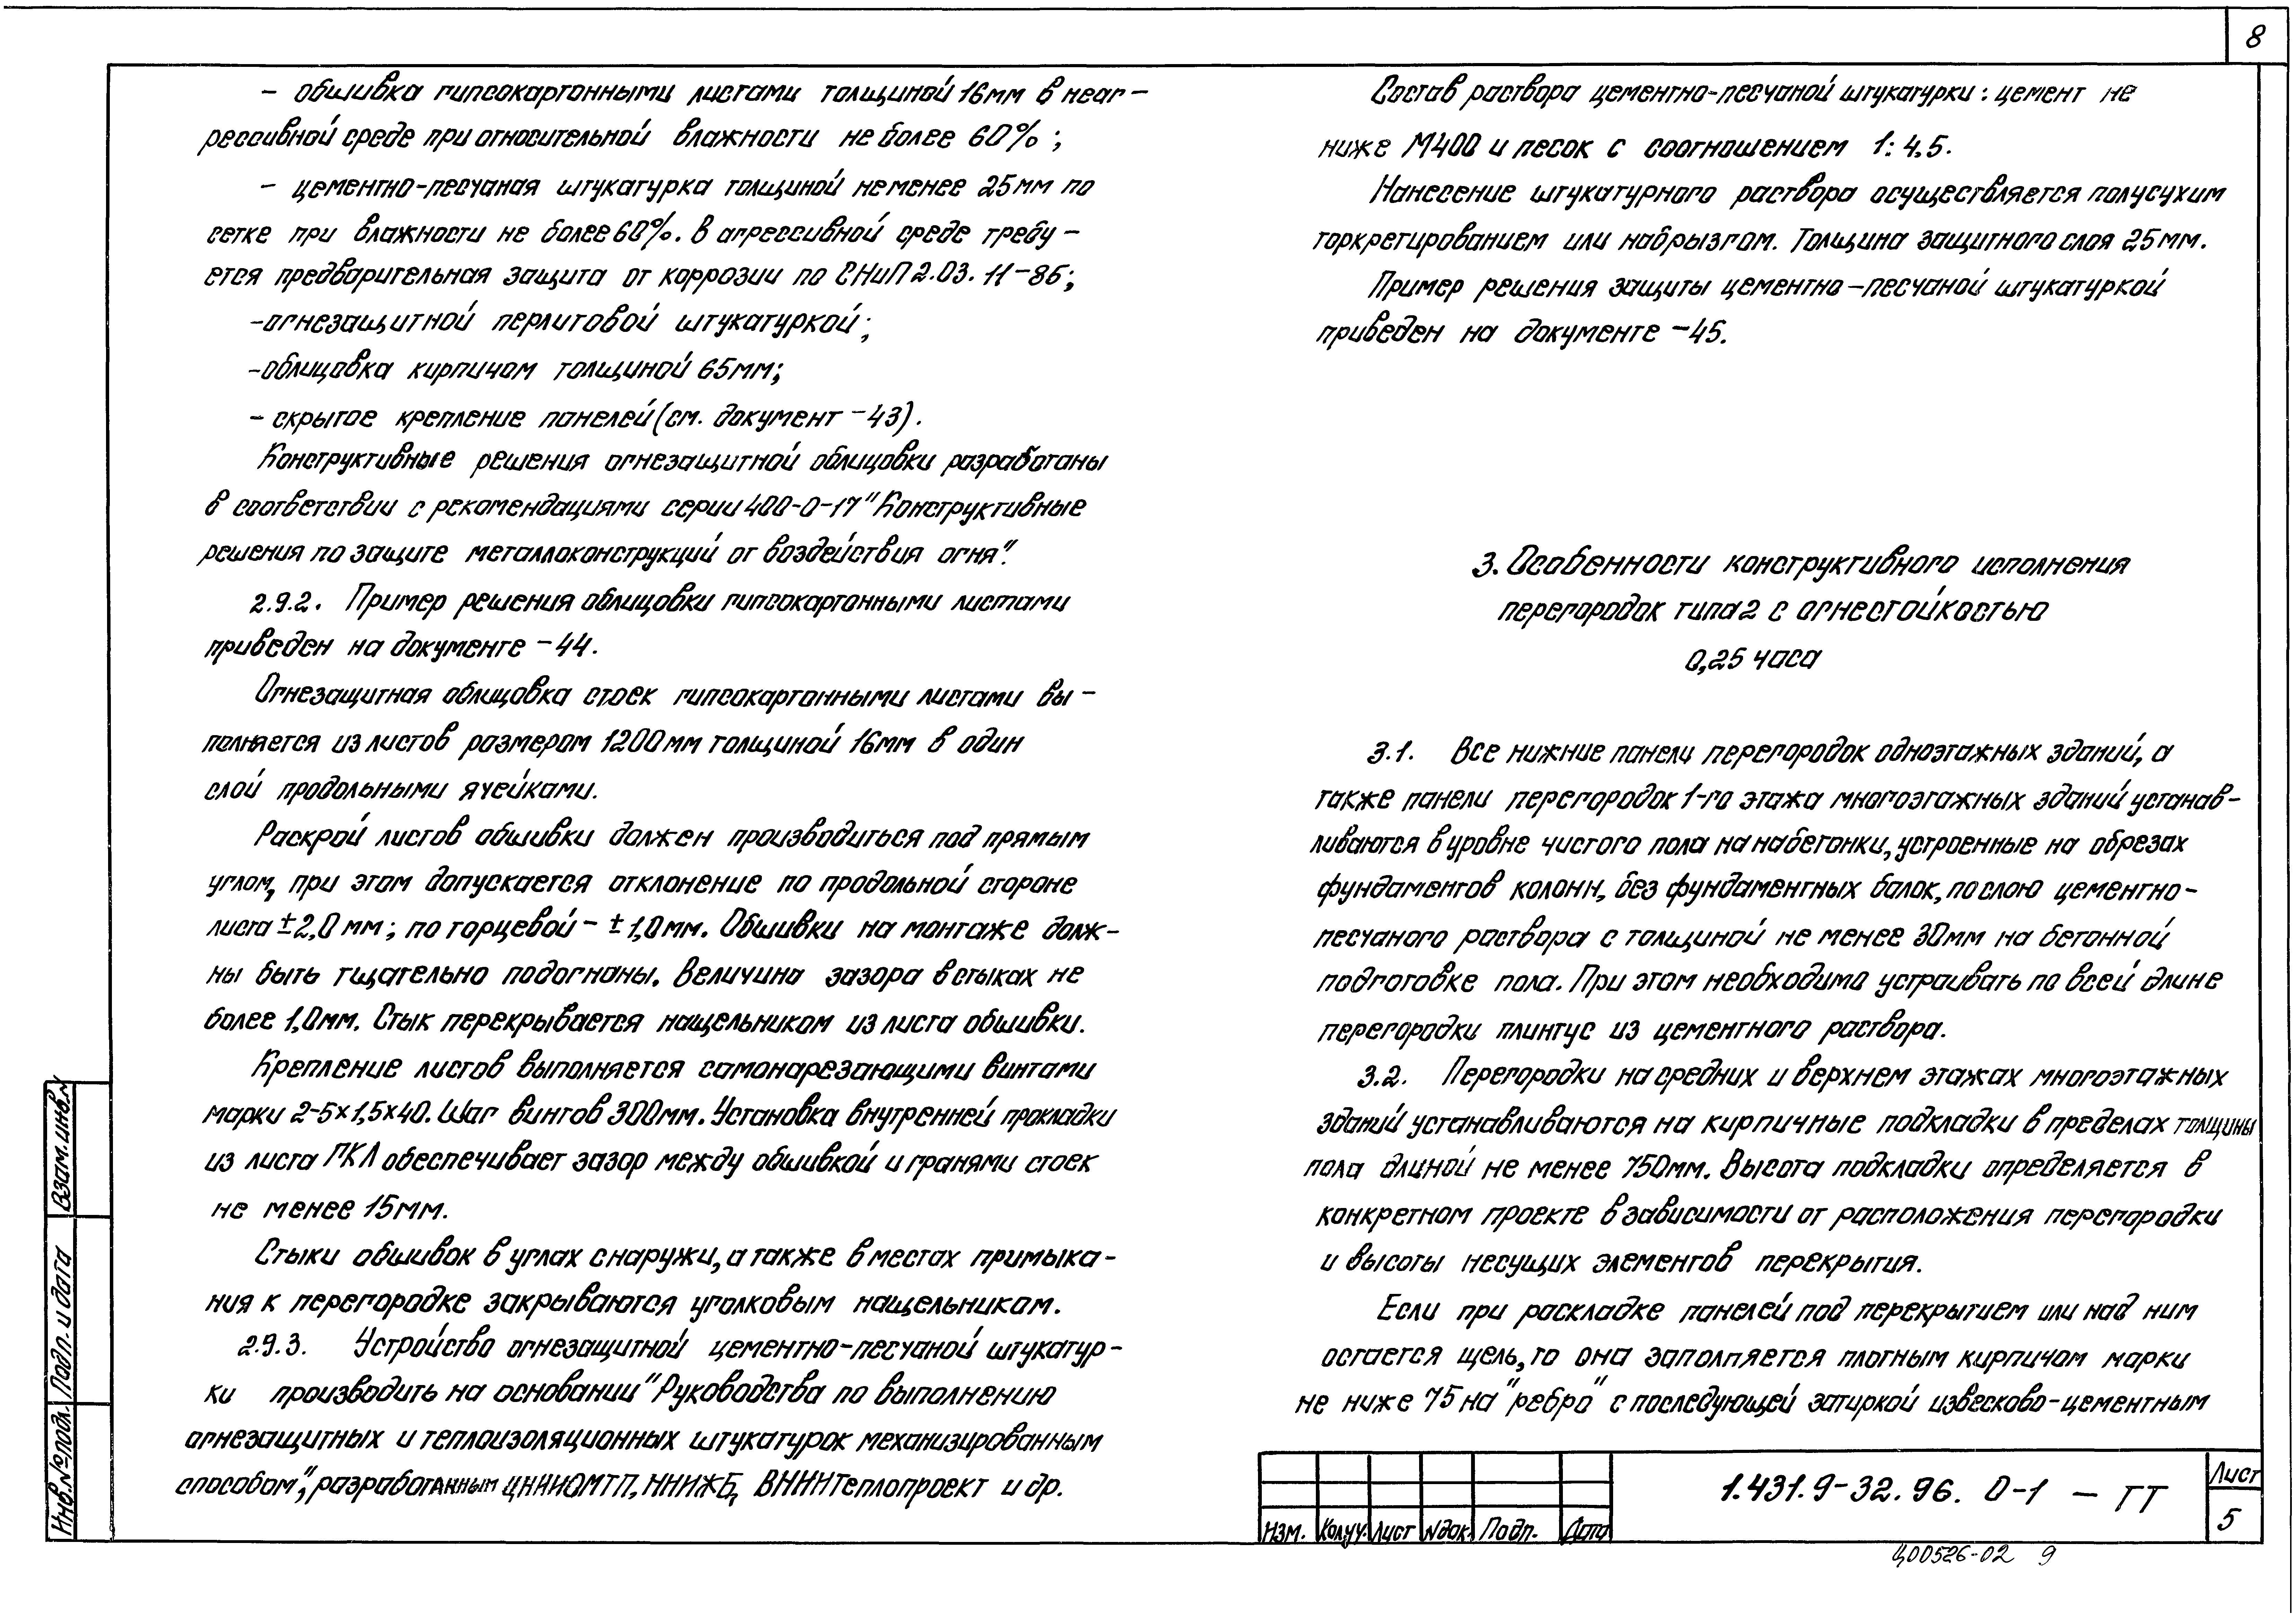 8
– обшивка гипсокартонными листами толщиной 16мм в неаг–
рессивной среде при относительной влажности не более 60%;
– цементно-песчаная штукатурка толщиной не менее 25мм по
сетке при влажности не более 60%. В агрессивной среде требу–
ется предварительная защита от коррозии по СНиП 2.03.11–85;
–огнезащитной перлитовой штукатуркой;
–облицовка кирпичом толщиной 65мм;
– скрытое крепление панелей (см. документ –43).
Конструктивные решения огнезащитной облицовки разработаны
в соответствии с рекомендациями серии 400-0-17 "Конструктивные
решения по защите металлоконструкций от воздействия огня".
2.9.2. Пример решения облицовки гипсокартонными листами
приведен на документе –44.
Огнезащитная облицовка стоек гипсокартонными листами вы–
полняется из листов размером 1200мм толщиной 16мм в один
слой продольными ячейками.
Раскрой листов обшивки должен производиться под прямым
углом, при этом допускается отклонение по продольной стороне
листа ±2,0 мм; по торцевой – ±1,0мм. Обшивки на монтаже долж–
ны быть тщательно подогнаны. Величина зазора в стыках не
более 1,0мм. Стык перекрывается нащельником из листа обшивки.
Крепление листов выполняется самонарезающими винтами
марки 2-5×1,5×40. Шаг винтов 300мм. Установка внутренней прокладки
из листа ГКЛ обеспечивает зазор между обшивкой и гранями стоек
не менее 15мм.
Стыки обшивок в углах снаружи, а также в местах примыка–
ния к перегородке закрываются уголковым нащельником.
2.9.3. Устройство огнезащитной цементно-песчаной штукатур–
ки производить на основании "Руководства по выполнению
огнезащитных и теплоизоляционных штукатурок механизированным
способом", разработанным ЦНИИОМТП, НИИЖБ, ВНИИТеплопроект и др.
Состав раствора цементно-песчаной штукатурки: цемент не
ниже М400 и песок с соотношением 1:4,5.
Нанесение штукатурного раствора осуществляется полусухим
торкретированием или набрызгом. Толщина защитного слоя 25мм.
Пример решения защиты цементно–песчаной штукатуркой
приведен на документе –45.
3. Особенности конструктивного исполнения
перегородок типа 2 с огнестойкостью
0,25 часа
3.1. Все нижние панели перегородок одноэтажных зданий, а
также панели перегородок 1-го этажа многоэтажных зданий устанав–
ливаются в уровне чистого пола на набетонки, устроенные на обрезах
фундаментов колонн, без фундаментных балок, по слою цементно–
песчаного раствора с толщиной не менее 30мм на бетонной
подготовке пола. При этом необходимо устраивать по всей длине
перегородки плинтус из цементного раствора.
3.2. Перегородки на средних и верхнем этажах многоэтажных
зданий устанавливаются на кирпичные подкладки в пределах толщины
пола длиной не менее 750мм. Высота подкладки определяется в
конкретном проекте в зависимости от расположения перегородки
и высоты несущих элементов перекрытия.
Если при раскладке панелей под перекрытием или над ним
остается щель, то она заполняется плотным кирпичом марки
не ниже 75 на "ребро" с последующей затиркой известково-цементным
Взам.инв.№
Подп. и дата
Инв.№подл.
Изм. Кол.уч. Лист №док. Подп. Дата
1.431.9-32.96. 0-1 – ТТ
Лист
5
Ц00526-02 9